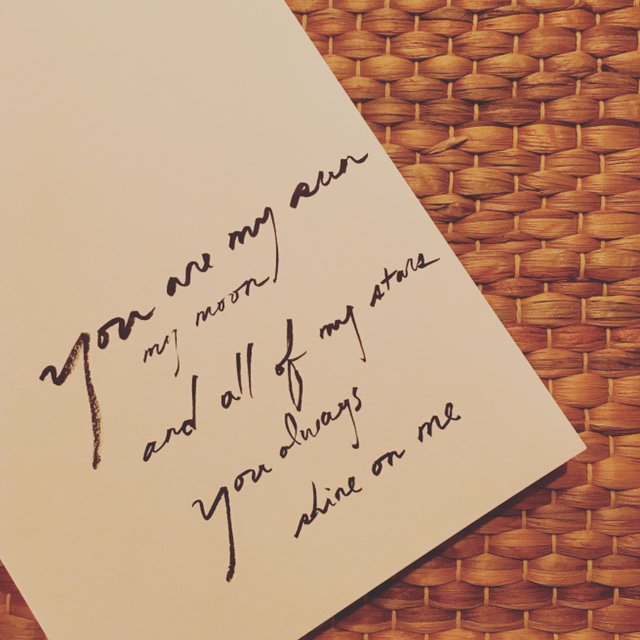 You are my sun
my moon
and all of my stars
you always
shine on me